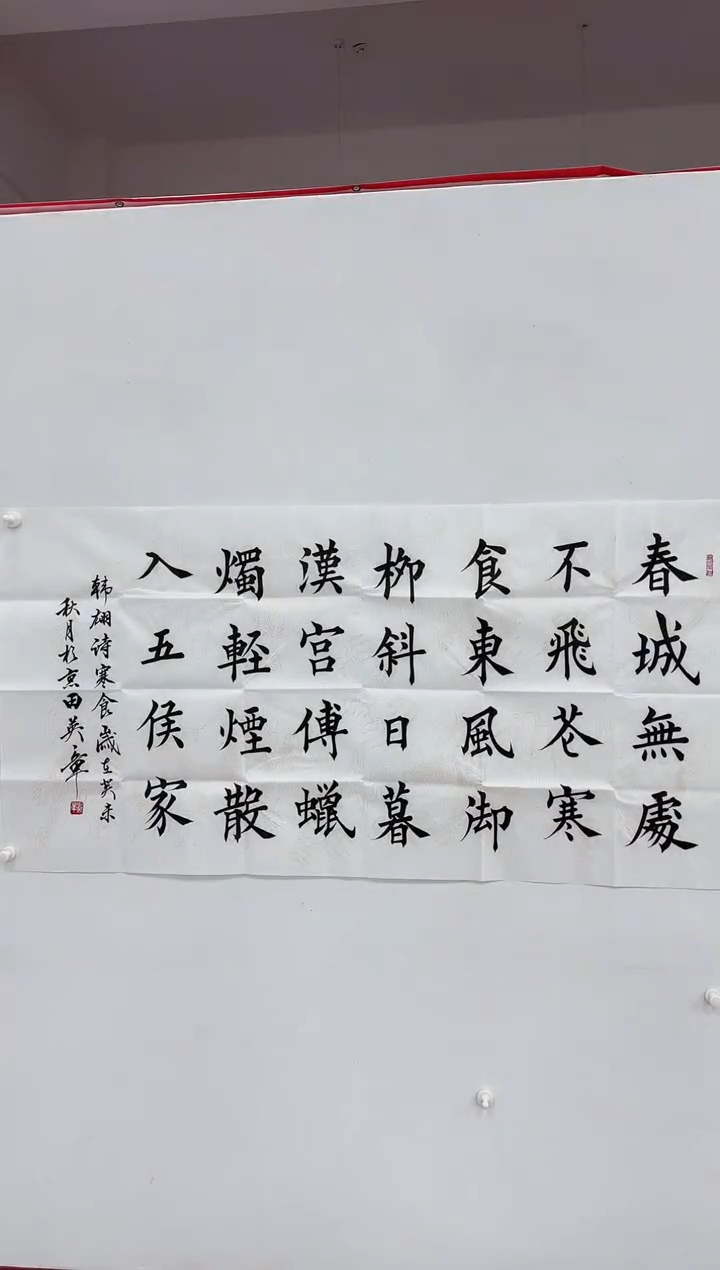 春城無處
不飛花寒
食東風御
柳斜日暮
漢宮傳蠟
燭輕煙散
入五侯家
韩翃诗寒食歲在癸未
秋月於京田英章